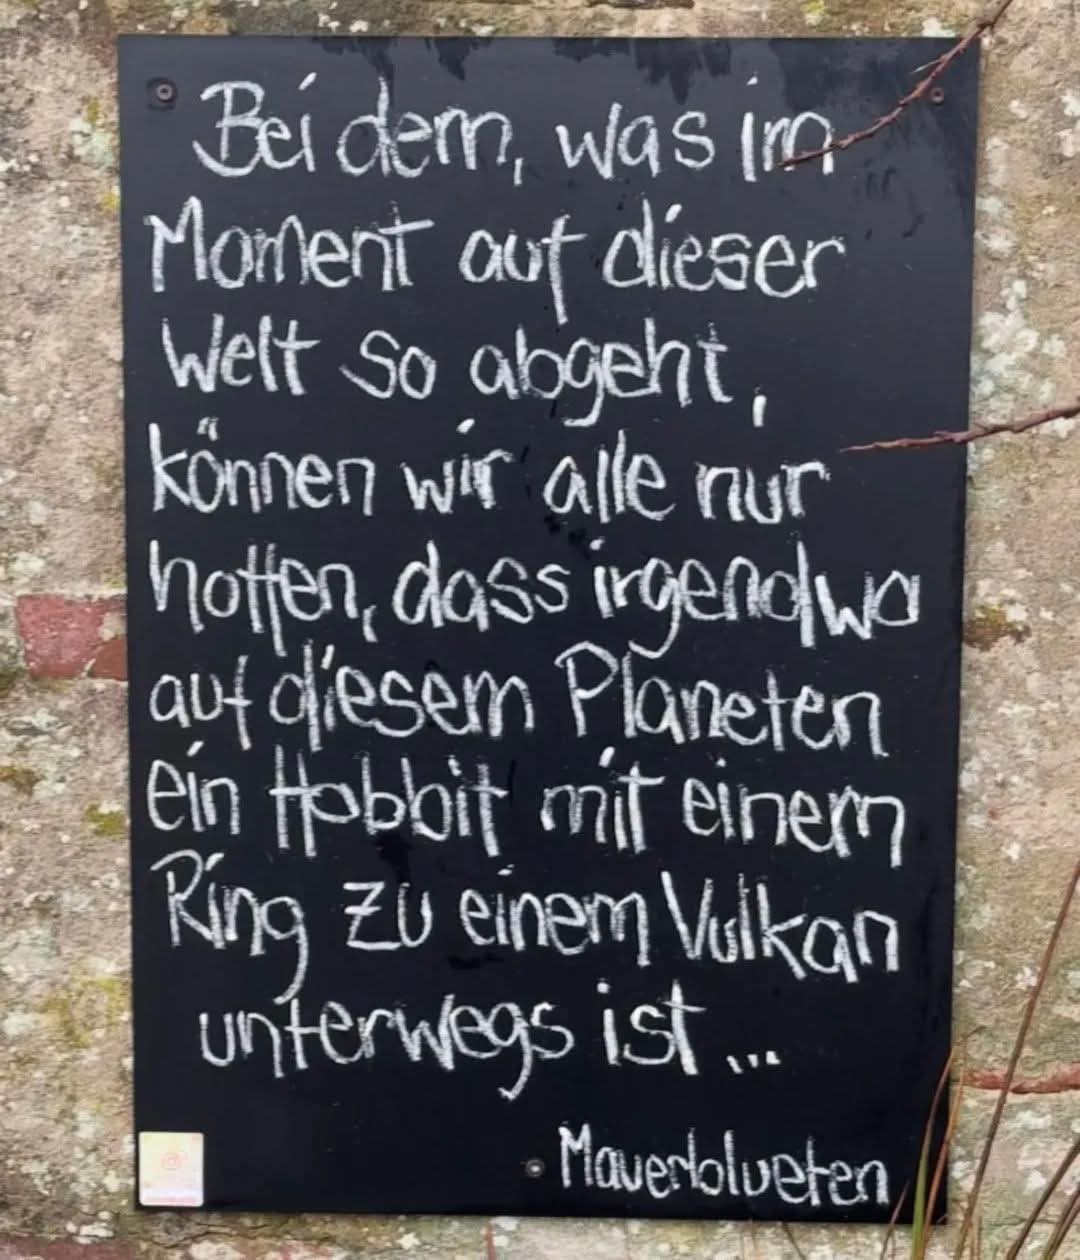 Bei dem, was im
Moment auf dieser
Welt so abgeht,
können wir alle nur
hoffen, dass irgendwo
auf diesem Planeten
ein Hobbit mit einem
Ring zu einem Vulkan
unterwegs ist...
Mauerblueten